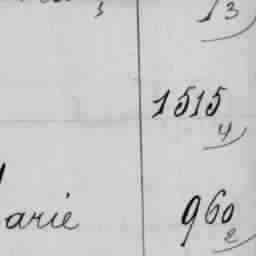 13
1515
4
arie 960
2